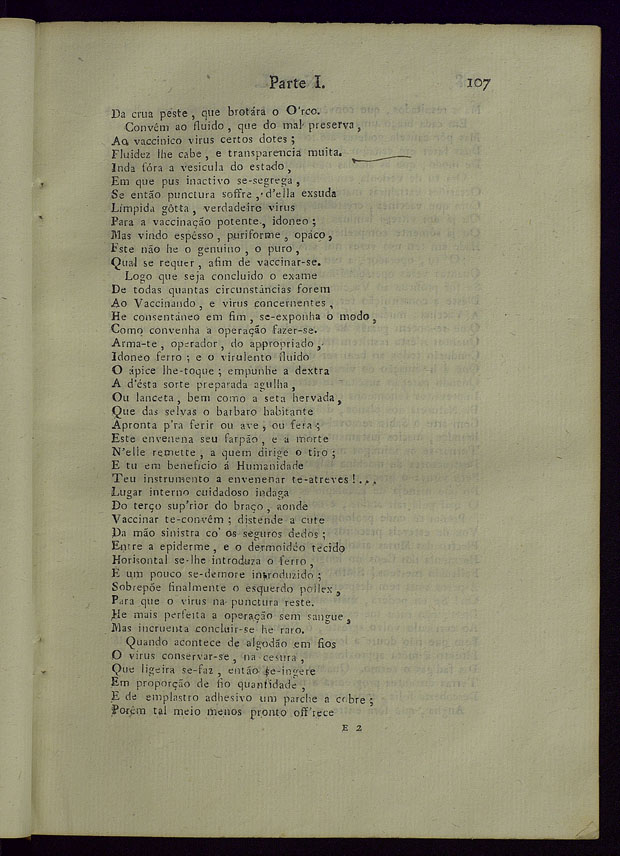 Parte I. 107
Da crua peste , que brotára o O'rco.
Convém ao fluido , que do mal preserva ,
Ao vaccinico virus certos dotes ;
Fluidez lhe cabe , e transparencia muita.
Inda fóra a vesicula do estado ,
Em que pus inactivo se-segrega ,
Se então punctura soffre , d'ella exsuda
Límpida gôtta , verdadeiro virus
Para a vaccinação potente , idoneo ;
Mas vindo espésso , puriforme , opáco ,
Este não he o genuino , o puro ,
Qual se requer , afim de vaccinar-se.
Logo que seja concluido o exame
De todas quantas circunstâncias forem
Ao Vaccinando , e virus concernentes ,
He consentáneo em fim , se-exponha o modo ,
Como convenha a operação fazer-se.
Arma-te , operador , do appropriado ,
Idoneo ferro ; e o virulento fluido
O ápice lhe-toque ; empunhe a dextra
A d'ésta sorte preparada agulha ,
Ou lanceta , bem como a seta hervada ,
Que das selvas o barbaro habitante
Apronta p'ra ferir ou ave , ou fera ;
Este envenena seu farpão , e a morte
N'elle remette , a quem dirige o tiro ;
E tu em benefício á Humanidade
Teu instrumento a envenenar te-atreves ! . . .
Lugar interno cuidadoso indaga
Do terço sup'rior do braço , aonde
Vaccinar te-convém ; distende a cute
Da mão sinistra co' os seguros dedos ;
Entre a epiderme , e o dermoidéo tecido
Horisontal se-lhe introduza o ferro ,
E um pouco se-demore introduzido ;
Sobrepõe finalmente o esquerdo pollex ,
Para que o virus na punctura reste.
He mais perfeita a operação sem sangue ,
Mas incruenta concluir-se he raro.
Quando acontece de algodão em fios
O virus conservar-se , na cesura ,
Que ligeira se-faz , então se-ingere
Em proporção de fio quantidade ,
E de emplastro adhesivo um parche a cobre ;
Porém tal meio menos pronto off'rece
E 2